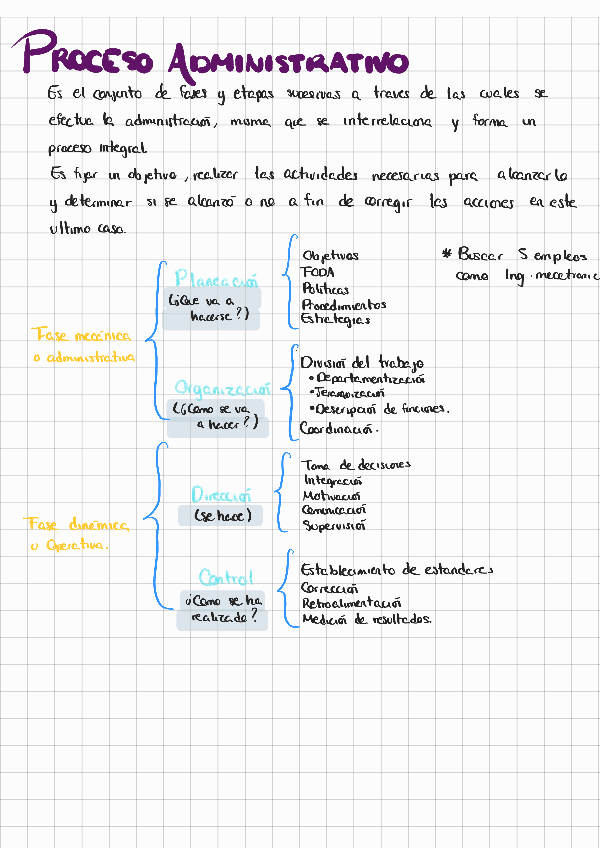 PROCESO ADMINISTRATIVO
Es el conjunto de fases y etapas sucesivas a traves de las cuales se
efectua la administración, misma que se interrelaciona y forma un
proceso integral.
Es fijar un objetivo, realizar las actividades necesarias para alcanzarlo
y determinar si se alcanzó o no a fin de corregir las acciones en este
ultimo caso.
* Buscar 5 empleos
como Ing. mecatronic
Fase mecánica
o administrativa
Planeación
(¿Que va a
hacerse?)
Objetivos
FODA
Políticas
Procedimientos
Estrategias
Organización
(¿Como se va
a hacer?)
División del trabajo
• Departamentización
• Jerarquización
• Descripción de funciones.
Coordinación.
Fase dinámica
u Operativa.
Dirección
(se hace)
Toma de decisiones
Integración
Motivación
Comunicación
Supervisión
Control
¿Como se ha
realizado?
Establecimiento de estandares
Corrección
Retroalimentación
Medición de resultados.